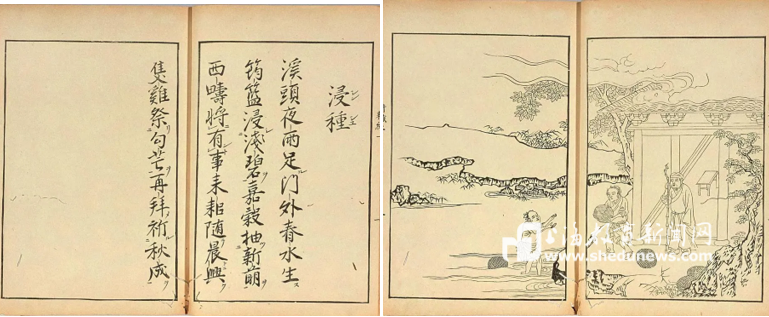 浸種
溪頭夜雨足門外春水生
筠籃浸淺碧嘉穀抽新萌
西疇將有事耒耜隨晨興
隻雞祭勾芒再拜祈秋成
上海教育新闻网
www.shedunews.com